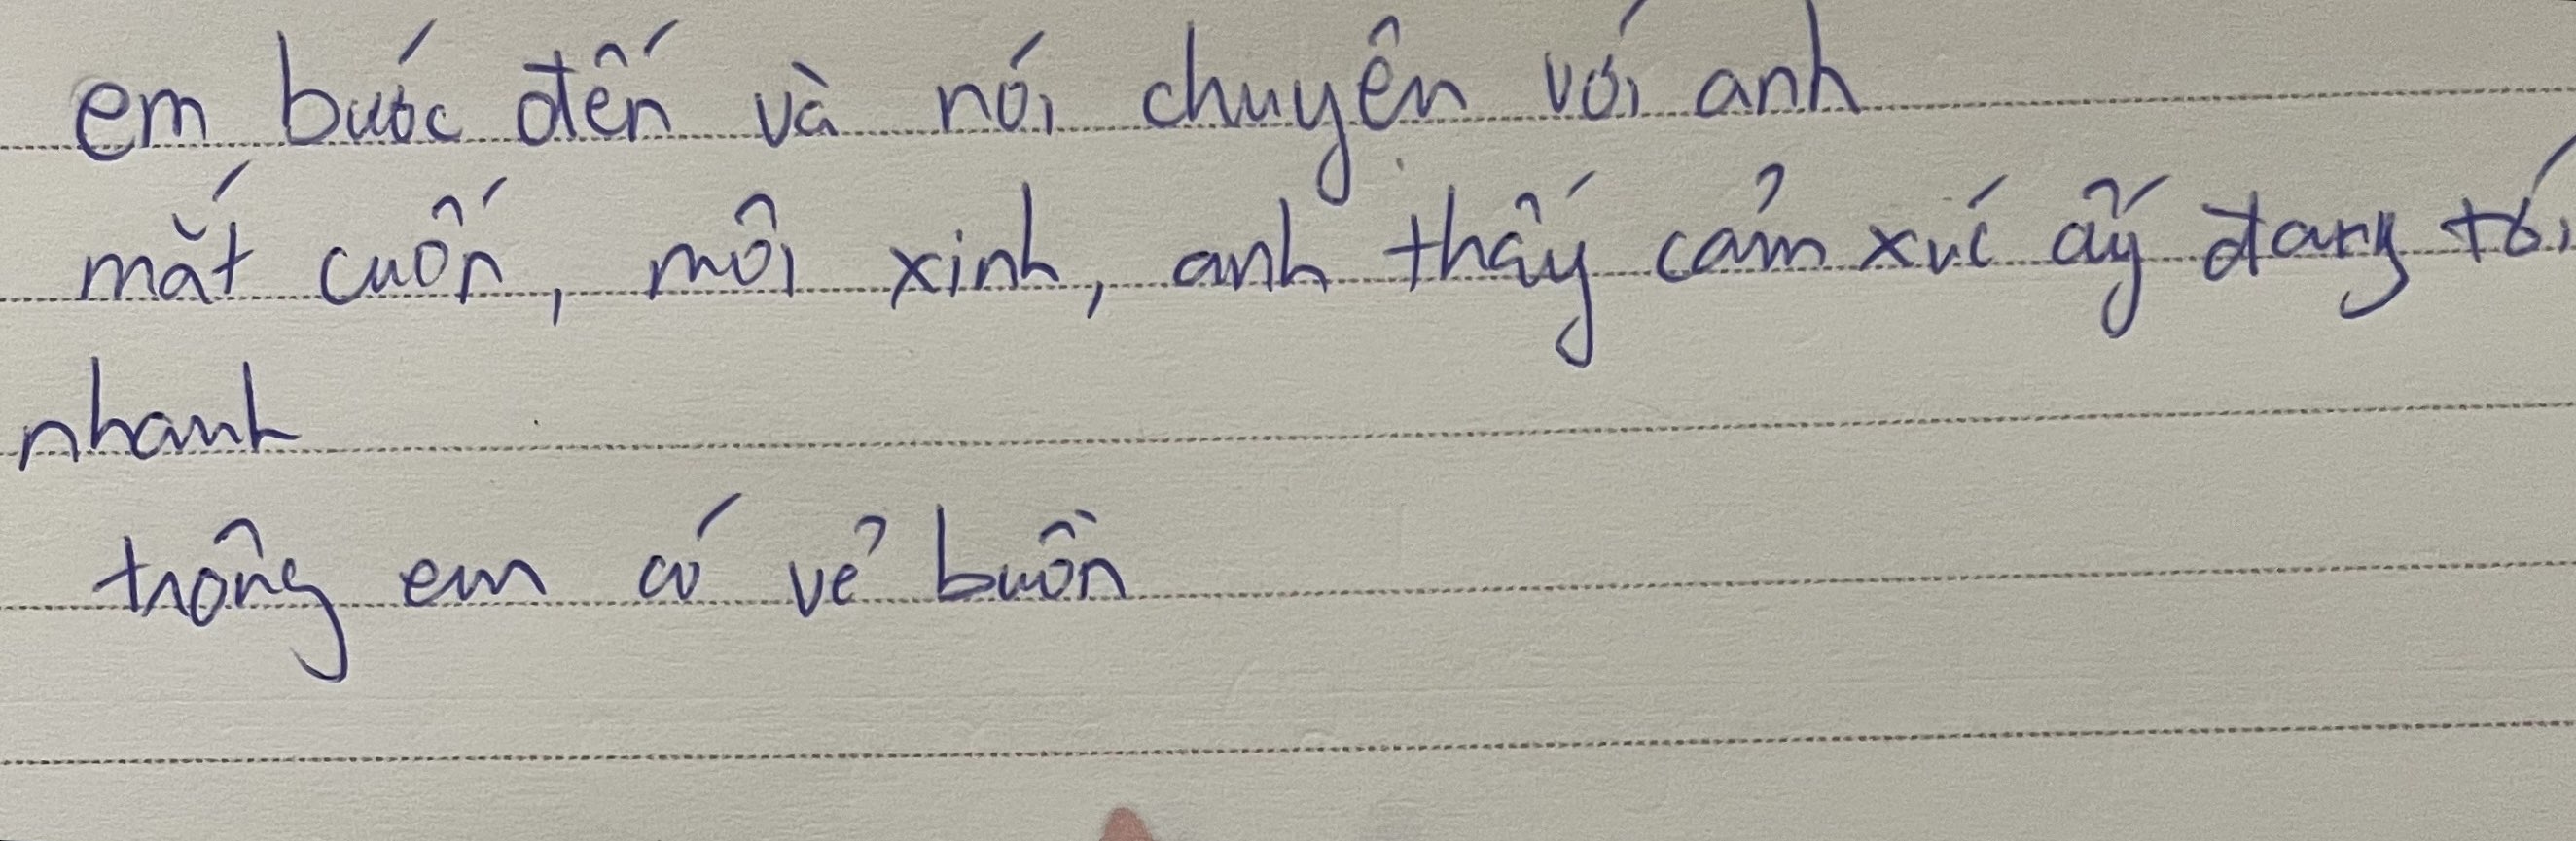 em bước đến và nói chuyện với anh
mắt cuốn, môi xinh, anh thấy cảm xúc ấy đang tới
nhanh
trông em có vẻ buồn